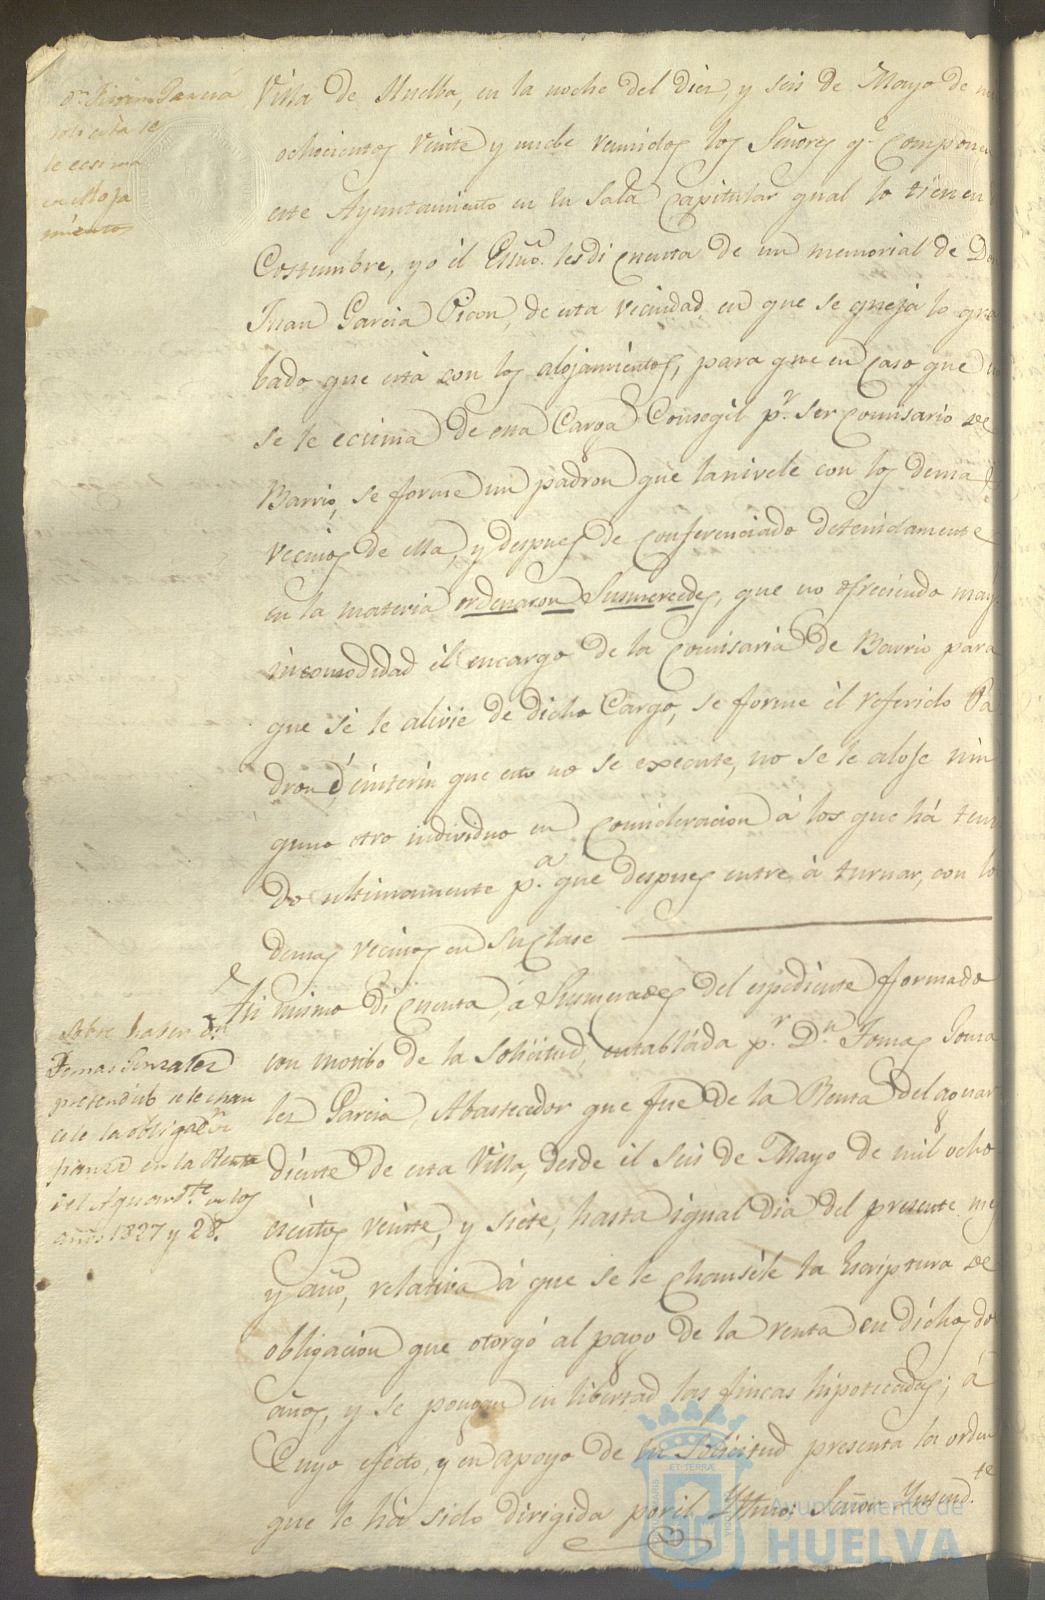 Dn Juan Garcia
solicita se
le ecsima
en Aloja
mientos
Villa de Huelba, en la noche del diez y seis de Mayo de
ochocientos veinte y nuebe reunidos los Señores qe componen
este Ayuntamiento en su Sala Capitular qual lo tienen
Costumbre, yo él Essno. les di cuenta de un memorial de Dn
Juan Garcia Picon, de esta vecindad, en que se queja lo gra
bado que está con los alojamientos, para que en caso que
se le ecsima de esa Carga Consegil pr. ser Comisario de
Barrio, se forme un padron que lanivele con los demas
vecinos de ella, y despues de conferenciado detenidamente
en la materia ordenaron Susmercedes, que no ofreciendo may.
incomodidad él encargo de la Comisaria de Barrio para
que sé le alivie de dicho Cargo, se forme él referido Pa
dron é, ínterin que esto no se execute, no se le aloje nin
guno otro individuo en Consideracion á los que há teni
do ultimamente pa. que despues entre á turnar, con lo
demas vecinos en su clase
Sobre haser Dn.
Tomas Gonzalez
pretendido se le chan
cele la obligacn
fianza en la Renta
del Aguardte en los
años 1827 y 28.
Asi mismo di cuenta, á Susmercedes del espediente formado
con motibo de la Solicitud, entablada pr. Dn. Tomas Gonza
lez Garcia, Abastecedor que fue de la Renta del aguar
diente de esta Villa, desde él Seis de Mayo de mil ocho
cientos veinte, y siete, hasta igual dia del presente mes
y año, relativa á que se le chanséle la Escriptura de
obligacion que otorgó al pago de la renta en dichos do
años, y se pongan en libertad las fincas hipotecadas; á
Cuyo efecto, y en apoyo de su Solicitud presenta la orden
que le há sido dirigida por él Yltmo; Señor Yntendte
Ayuntamiento de
HUELVA